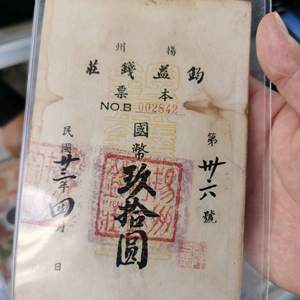 揚州
鈞益錢莊
本票
NO.B 002842
第卅六號
國幣玖拾圓
民國年四月日